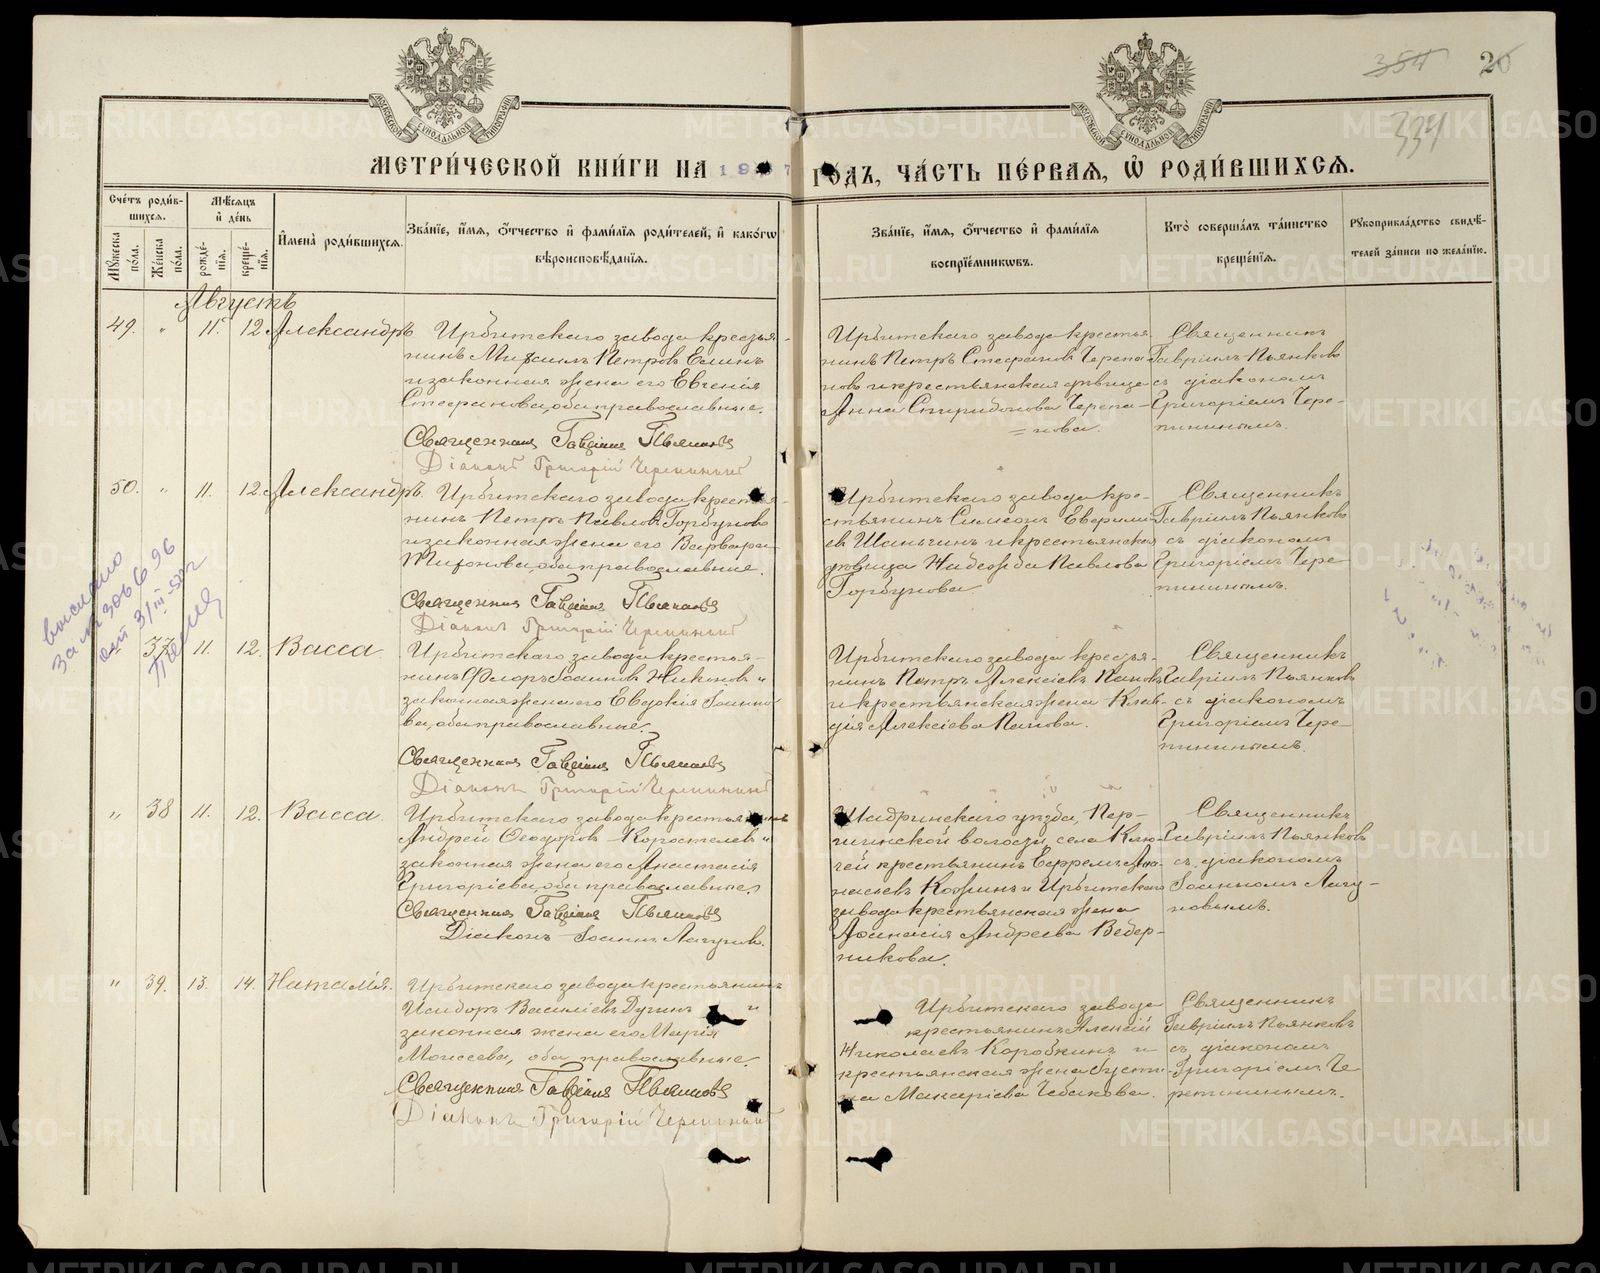 354 26
334
МЕТРИ́ЧЕСКОЙ КНИ́ГИ НА 1907 ГО́ДЪ, ЧА́СТЬ ПЕ́РВАЯ, Ѡ҆ РОДИ́ВШИХСЯ.
Сче́тъ роди́в-
шихся.
Мꙋжеска по́ла.
Же́нска по́ла.
Мѣсяцъ и҆ де́нь
рожде́нїя.
креще́нїя.
И҆мена̀ роди́вшихся.
Зва́нїе, и҆́мя, ѻ҆́тчество и҆ фами́лїя роди́телей, и҆ како́гѡ
вѣроисповѣ́данїя.
Зва́нїе, и҆́мя, ѻ҆́тчество и҆ фами́лїя
воспрїе́мникѡвъ.
Кто̀ соверша́лъ та́инство
креще́нїя.
Рꙋкоприкла́дство свидѣ́-
телей за́писи по жела́нїю.
Августъ
49. " 11. 12. Александръ
Ирбитскаго завода крестья-
нинъ Михаилъ Петровъ Елинъ
и законная жена его Евгенія
Стефанова, оба православные.
Священникъ Гавріилъ Пьянковъ
Діаконъ Григорій Черепининъ
Ирбитскаго завода крестья-
нинъ Петръ Стефановъ Черепа-
новъ и крестьянская дѣвица
Анна Спиридонова Черепа-
=нова.
Священникъ
Гавріилъ Пьянковъ
съ діакономъ
Григоріемъ Чере-
пининымъ.
50. " 11. 12. Александръ.
Ирбитскаго завода крестья-
нинъ Петръ Павловъ Горбуновъ
и законная жена его Варвара
Тихонова, оба православные.
Священникъ Гавріилъ Пьянковъ
Діаконъ Григорій Черепининъ
Ирбитскаго завода кре-
стьянинъ Симеонъ
и крестьянская
дѣвица Надежда Павлова
Горбунова
Священникъ
Гавріилъ Пьянковъ
съ діакономъ
Григоріемъ Чере-
пининымъ.
выслано
за № 306696
от 31/III-52 г
" 37 11. 12. Васса
Ирбитскаго завода крестья-
нинъ Флоръ Іоанновъ Никоновъ и
законная жена его Евдокія Іоанно-
ва, оба православные.
Священникъ Гавріилъ Пьянковъ
Діаконъ Григорій Черепининъ
Ирбитскаго завода крестья-
нинъ Петръ Алексіевъ Пановъ
и крестьянская жена Клав-
дія Алексіева Панова.
Священникъ
Гавріилъ Пьянковъ
съ діакономъ
Григоріемъ Чере-
пининымъ.
" 38 11. 12. Васса.
Ирбитскаго завода крестьянинъ
Андрей Ѳеодоровъ Коростелевъ и
законная жена его Анастасія
Григоріева, оба православные.
Священникъ Гавріилъ Пьянковъ
Діаконъ Іоаннъ Лагуновъ.
Шадринскаго уѣзда, Пер-
шинской волости, села Клю-
чей крестьянинъ Ефремъ Аѳа-
насіевъ Кожинъ и Ирбитскаго
завода крестьянская жена
Аѳанасія Андреева Ведер-
никова.
Священникъ
Гавріилъ Пьянковъ
съ діакономъ
Іоанномъ Лагу-
новымъ.
" 39. 13. 14. Наталія.
Ирбитскаго завода крестьянинъ
Исидоръ Василіевъ Ду́нинъ и
законная жена его Марія
Моисеева, оба православные.
Священникъ Гавріилъ Пьянковъ
Діаконъ Григорій Черепининъ
Ирбитскаго завода
крестьянинъ Алексій
Николаевъ Коробкинъ и
крестьянская жена Іусти-
на Макаріева Чебакова.
Священникъ
Гавріилъ Пьянковъ
съ діакономъ
Григоріемъ Че-
репининымъ.